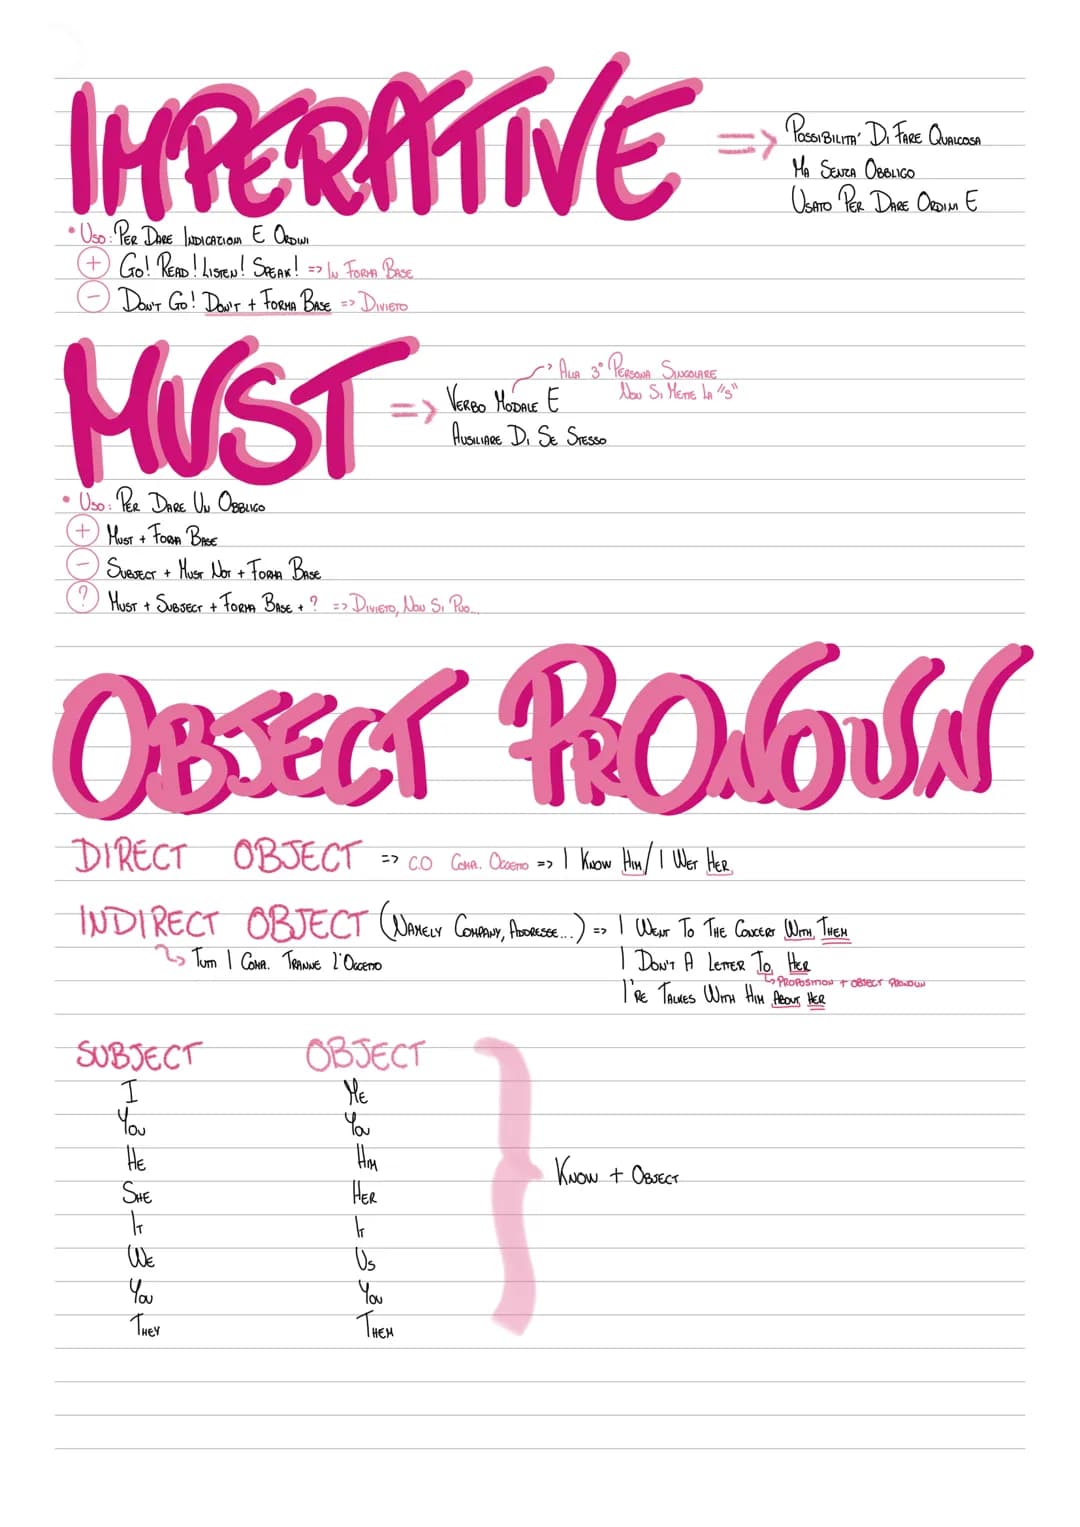 IMPERATIVE => POSSIBILITA' DI FARE QUALCOSA
MA SENZA OBBLIGO
USATO PER DARE ORDINI E
• USO: PER DARE INDICAZIONI E ORDINI
+ GO! READ! LISTEN! SPEAK! => IN FORMA BASE
- DON'T GO! DON'T + FORMA BASE => DIVIETO
MUST => VERBO MODALE E
AUSILIARE DI SE STESSO
-> ALLA 3° PERSONA SINGOLARE
NON SI METTE LA "S"
• USO: PER DARE UN OBBLIGO
+ MUST + FORMA BASE
- SUBJECT + MUST NOT + FORMA BASE
? MUST + SUBJECT + FORMA BASE + ? => DIVIETO, NON SI PUO...
OBJECT PRONOUN
DIRECT OBJECT => C.O COMP. OGGETTO => I KNOW HIM/ I WET HER
INDIRECT OBJECT (NAMELY COMPANY, ADDRESEE...) => I WENT TO THE CONCERT WITH THEM
TUTTI I COMP. TRANNE L'OGGETTO
I DON'T A LETTER TO HER
PROPOSITION + OBJECT PRONOUN
I'RE TALKES WITH HIM ABOUT HER
SUBJECT OBJECT
I ME
YOU YOU
HE HIM
SHE HER
IT IT
WE US
YOU YOU
THEY THEM
KNOW + OBJECT